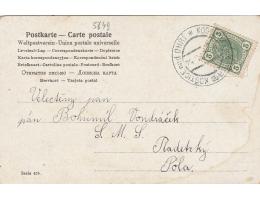 5649
Postkarte — Carte postale
Weltpostverein - Union postale universelle
Levelező-Lap - Correspondenzkarte - Dopisnice
Karta korespondencyjna - Korespondenční lístek
Briefkaart - Cartolina postale - Postcard - Brefkort
Открытое письмо — Дописна карта
Brevkort — Tarjeta postal
Velectěný pan
pán Bohumil Vondráček
S. M. S.
Radetzky
Pola.